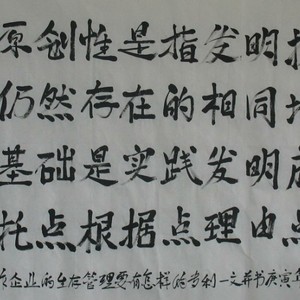 原创性是指发明
仍然存在的相同
基础是实践发明
托点根据点理由点
企业的生存管理要有怎样的专利一文并书庚寅